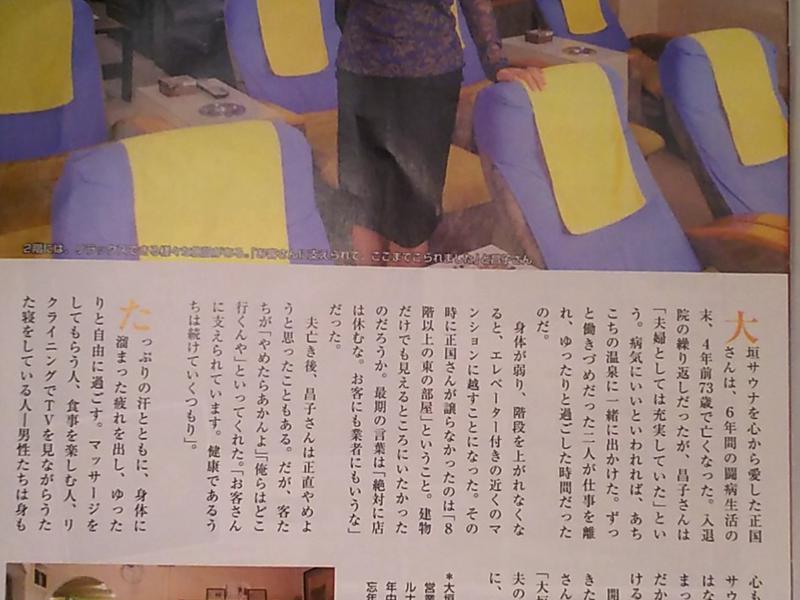 2階には、リラックスできる様々な設備がある。「お客さんに支えられて、ここまでこられました」と昌子さん
大垣サウナを心から愛した正国
さんは、6年間の闘病生活の
末、4年前73歳で亡くなった。入退
院の繰り返しだったが、昌子さんは
「夫婦としては充実していた」とい
う。病気にいいといわれれば、あち
こちの温泉に一緒に出かけた。ずっ
と働きづめだった二人が仕事を離
れ、ゆったりと過ごした時間だった
のだ。
身体が弱り、階段を上がれなくな
ると、エレベーター付きの近くのマ
ンションに越すことになった。その
時に正国さんが譲らなかったのは「8
階以上の東の部屋」ということ。建物
だけでも見えるところにいたかった
のだろうか。最期の言葉は「絶対に店
は休むな。お客にも業者にもいうな」
だった。
夫亡き後、昌子さんは正直やめよ
うと思ったこともある。だが、客た
ちが「やめたらあかんよ」「俺らはどこ
行くんや」といってくれた。「お客さん
に支えられています。健康であるう
ちは続けていくつもり」。
たっぷりの汗とともに、身体に
溜まった疲れを出し、ゆった
りと自由に過ごす。マッサージを
してもらう人、食事を楽しむ人、リ
クライニングでTVを見ながらうた
た寝をしている人―男性たちは身も
心も
サウ
はな
まっ
だか
ける
開
きた
さん
「大垣
夫の
に、
*大垣
営業
ルナ
年中
忘年